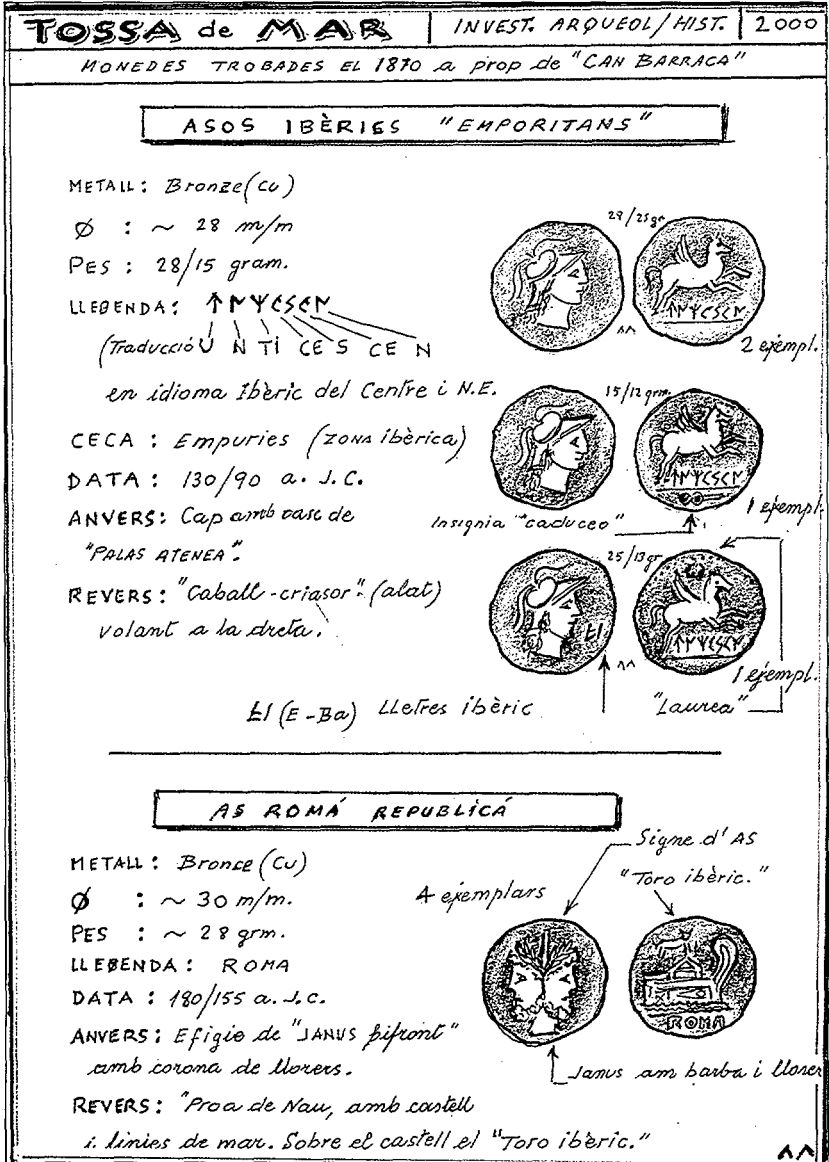 TOSSA de MAR | INVEST. ARQUEOL/HIST. | 2000
MONEDES TROBADES EL 1870 a prop de "CAN BARRACA"
ASOS IBÈRIES "EMPORITANS"
METALL: Bronze (Cu)
Ø : ~ 28 m/m
PES : 28/15 gram.
LLEGENDA:
(Traducció U N TI CE S CE N
en idioma Ibèric del Centre i N.E.
CECA : Empuries (ZONA ibèrica)
DATA : 130/90 a. J.C.
ANVERS: Cap amb casc de
"PALAS ATENEA".
REVERS: "Caball-criasor" (alat)
volant a la dreta.
28/25 gr.
2 ejempl.
15/12 grm.
1 ejempl.
Insignia "caduceo"
25/13 gr
1 ejempl.
"Laurea"
(E-Ba) Lletres ibèric
AS ROMÁ REPUBLICÁ
METALL: Bronce (Cu)
Ø : ~ 30 m/m.
PES : ~ 28 grm.
LLEGENDA: ROMA
DATA : 180/155 a. J.C.
ANVERS: Efigie de "JANUS bifront"
amb corona de llorers.
REVERS: "Proa de Nau, amb castell
i linies de mar. Sobre el castell el "Toro ibèric."
4 ejemplars
Signe d'AS
"Toro ibèric."
ROMA
Janus am barba i llorer